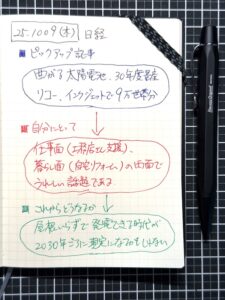 25.1009(木) 日経
■ピックアップ記事
曲がる太陽電池、30年度量産
リコー、インクジェットで9万世帯分
■自分にとって
仕事面(工務店さん支援)、
暮らし面(自宅リフォーム)の両面で
うれしい話題である
■これからどうなるか
屋根いらずで発電できる時代が
2030年ごろに現実になるかもしれない